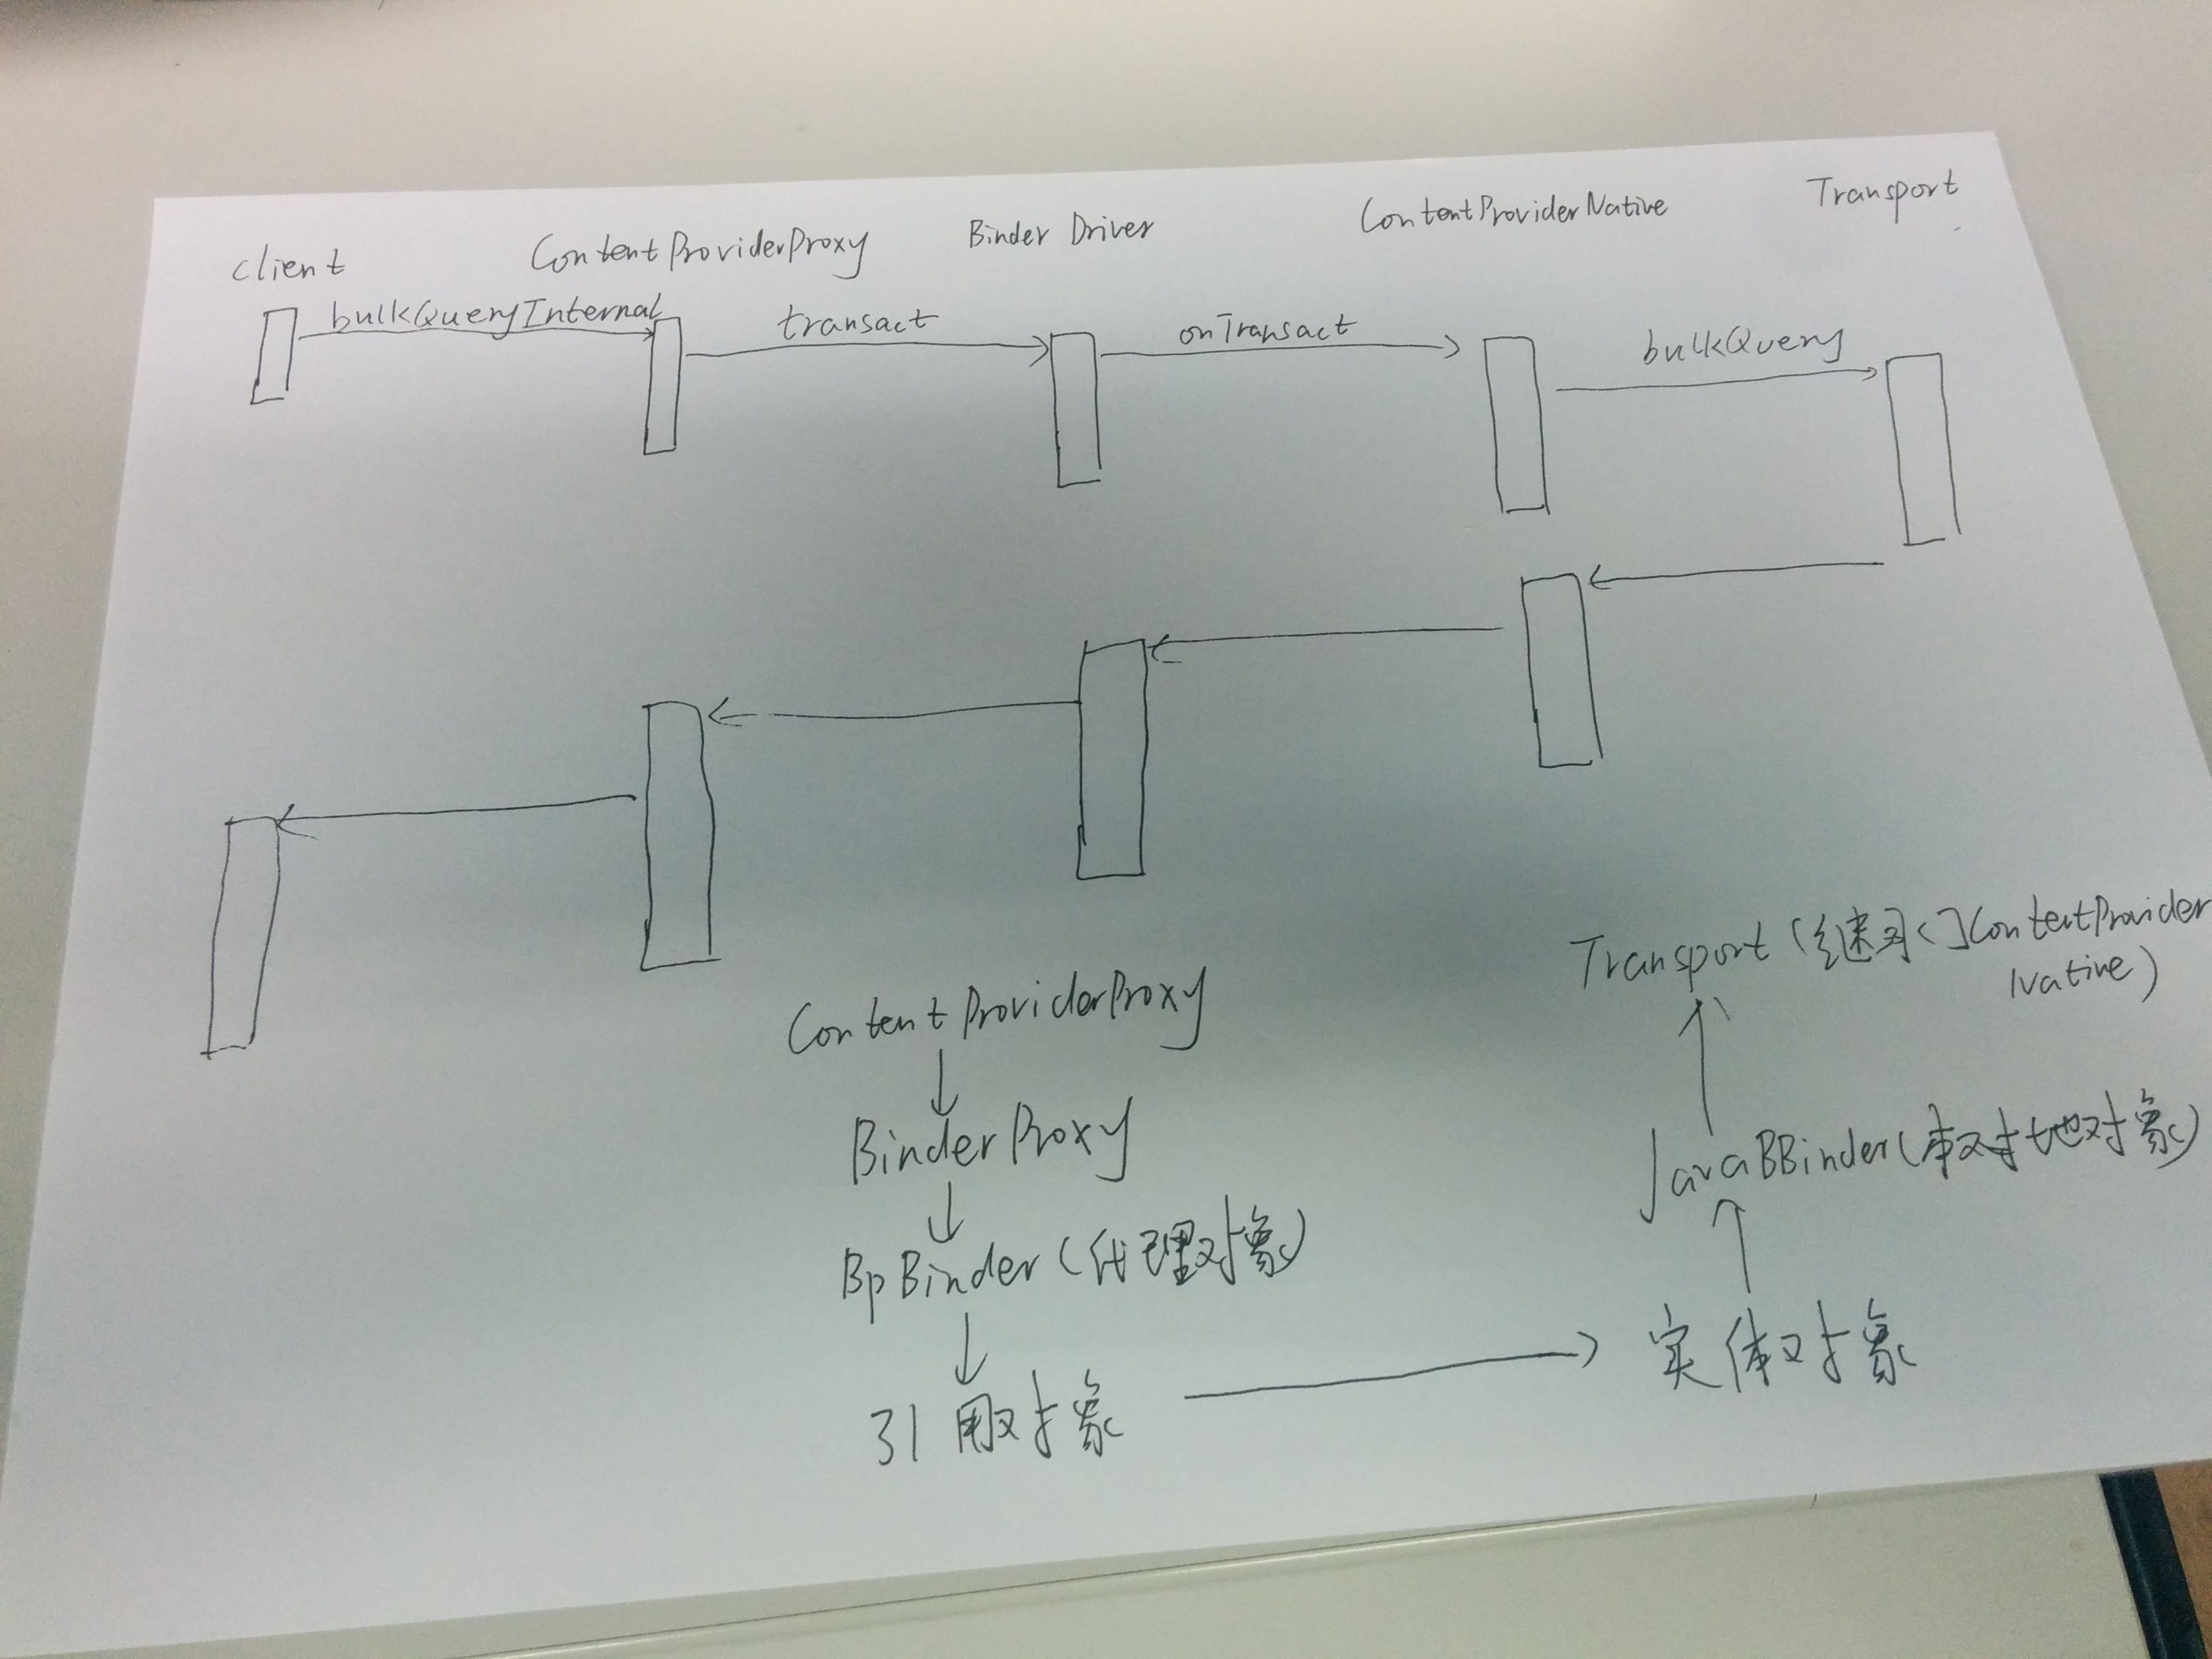 client ContentProviderProxy Binder Driver ContentProviderNative Transport
bulkQueryInternal transact onTransact bulkQuery
Transport (继承
ContentProvider
Native)
ContentProviderProxy
BinderProxy
JavaBBinder(本地对象)
BpBinder (代理对象)
引用对象
实体对象